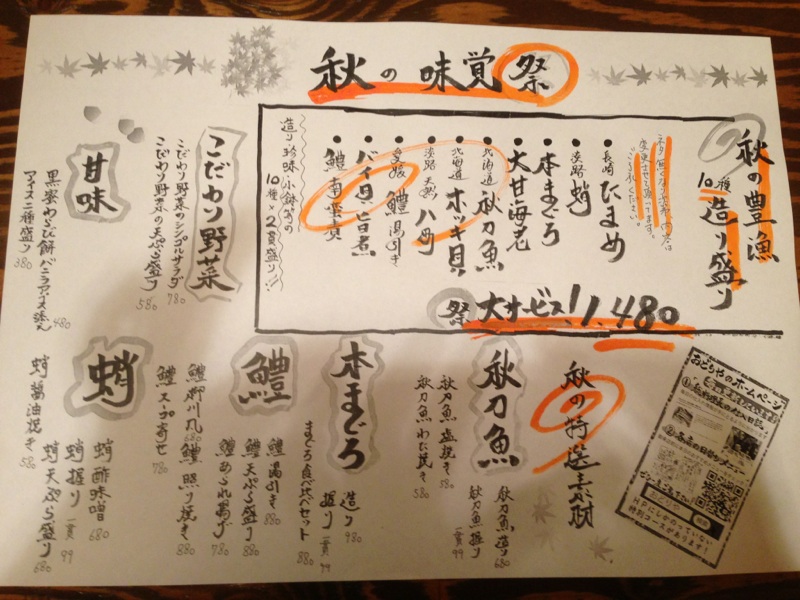 秋の味覚祭
秋の豊漁
10種造り盛り
長崎 ひらめ
淡路 蛸
本まぐろ
大甘海老
北海道 秋刀魚
北海道 ホッキ貝
淡路 天然 ハモ
愛媛 鱧湯引き
バイ貝旨煮
造り珍味小鉢等の
10種×2貫盛り!!
祭 大サービス!1,480
こだわり野菜
こだわり野菜のシンプルサラダ 780
こだわり野菜の天ぷら盛り 580
甘味
黒蜜わらび餅バニラアイス添え 480
アイス二種盛り 380
秋の特選素材
秋刀魚
秋刀魚造り 680
秋刀魚握り 一貫99
秋刀魚塩焼き 580
秋刀魚わた焼き 580
本まぐろ
造り 980
握り 一貫99
まぐろ食べ比べセット 880
鱧
鱧湯引き 880
鱧天ぷら盛り 880
鱧あられ揚げ 780
鱧照り焼き 880
鱧柳川風 680
鱧スープ寄せ 780
蛸
蛸酢味噌 680
蛸握り 一貫99
蛸天ぷら盛り 680
蛸醤油焼き 580
おどりやのホームページ
おどりや
HPにしかのっていない
特別コースがあります!